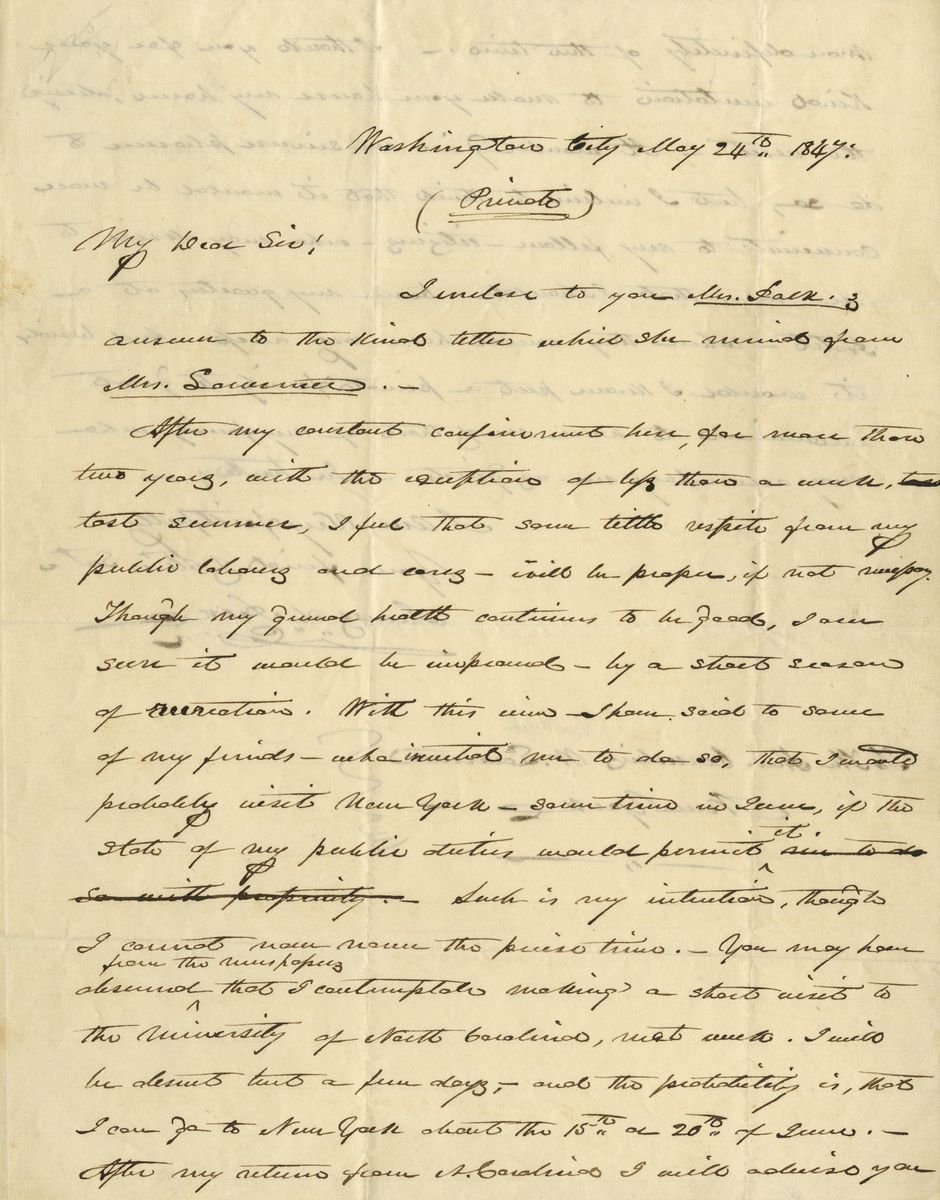 Washington City May 24th 1847.
(Private)
My Dear Sir!
I enclose to you Mrs. Polk's
answer to the kind letter which she received from
Mrs. Lawrence. —
After my constant confinement here, for more than
two years, with the exception of less than a week,
last summer, I feel that some little respite from my
public labours and cares – will be proper, if not necessary.
Though my general health continues to be good, I am
sure it would be improved – by a short season
of recreation. With this view – I have said to some
of my friends – who invited me to do so, that I would
probably visit New York – some time in June, if the
state of my public duties would permit it. me to do
so with propriety. – Such is my intention, though
I cannot now name the precise time. – You may have
from the newspapers
observed that I contemplate making a short visit to
the University of North Carolina, next week. I will
be absent but a few days, – and the probability is, that
I can go to New York about the 15th or 20th of June. –
After my return from N. Carolina I will advise you